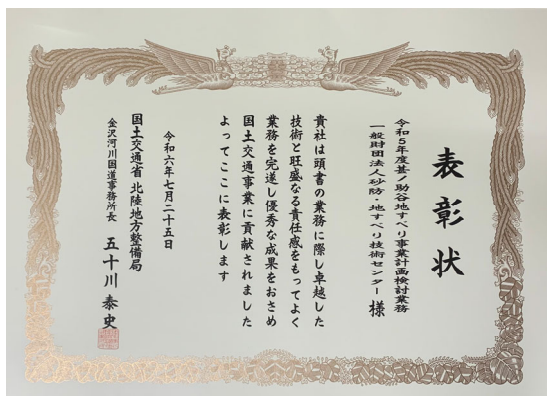 表彰状
令和5年度甚ノ助谷地すべり事業計画検討業務
一般財団法人砂防・地すべり技術センター 様
貴社は頭書の業務に際し卓越した
技術と旺盛なる責任感をもってよく
業務を完遂し優秀な成果をおさめ
国土交通事業に貢献されました
よってここに表彰します
令和六年七月二十五日
国土交通省 北陸地方整備局
金沢河川国道事務所長 五十川 泰史